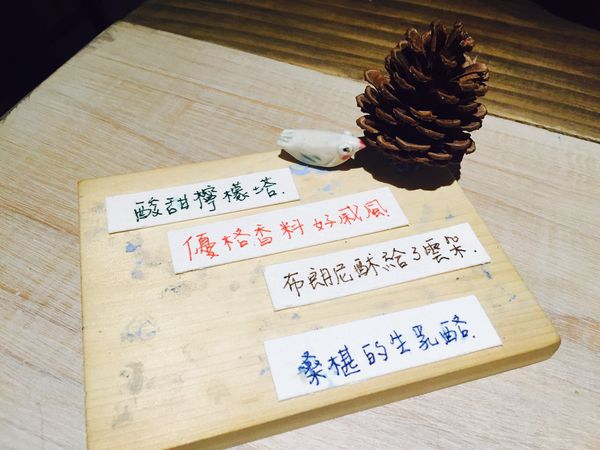 酸甜檸檬塔.
優格香料好威風.
布朗尼酥給了雲朵.
桑椹的生乳酪.